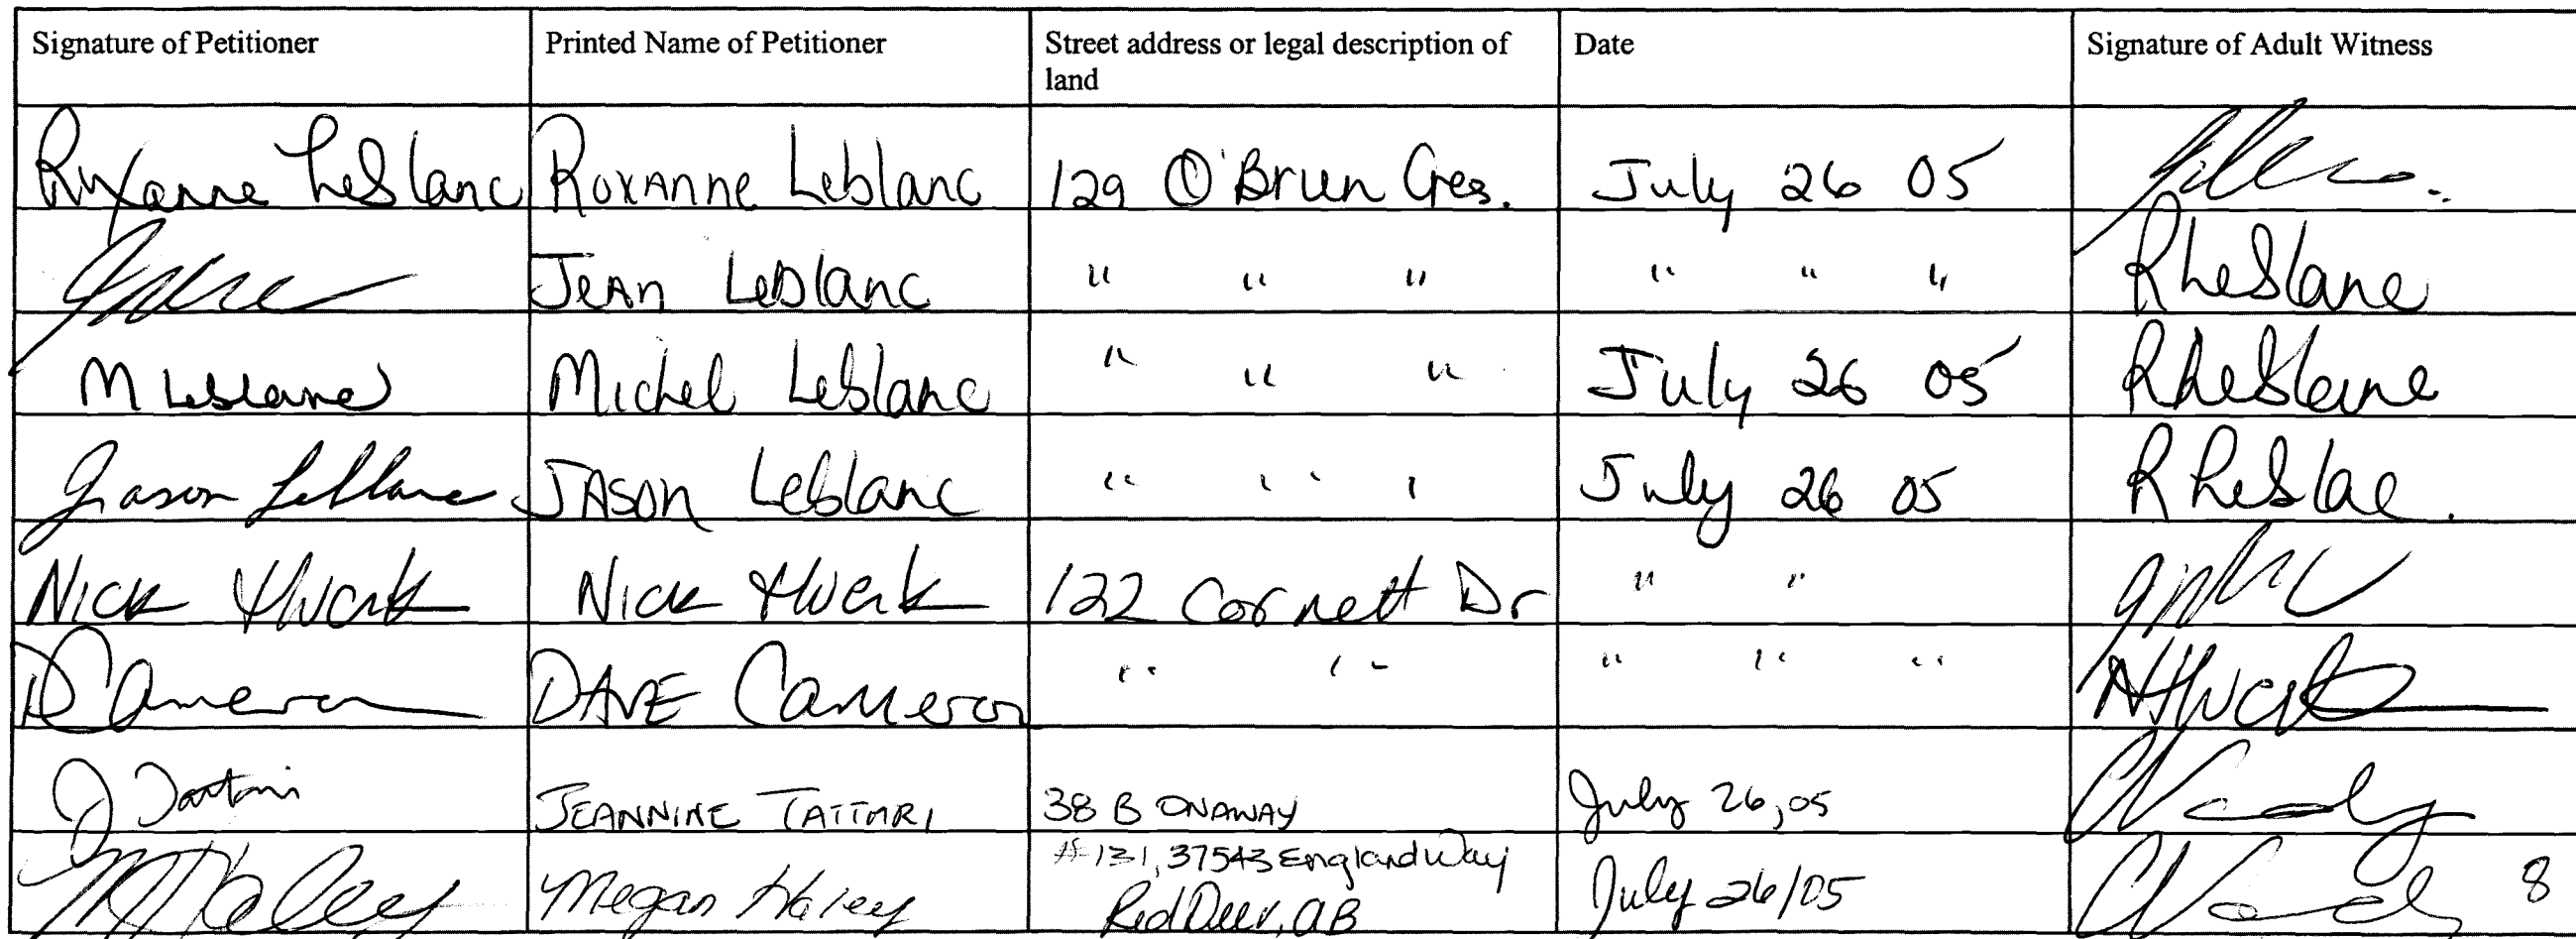 Signature of Petitioner Printed Name of Petitioner Street address or legal description of land Date Signature of Adult Witness
Roxanne LeBlanc Roxanne Leblanc 129 O'Brien Cres. July 26 05
Jean Leblanc " " " " " " R LeBlanc
M Leblanc Michel Leblanc " " " July 26 05 R LeBlanc
Jason Leblanc Jason Leblanc " " " July 26 05 R LeBlanc
Nick Nick 122 Cornett Dr " "
D Cameron DAVE Cameron " " " " "
J Tattari JEANNINE TATTARI 38 B ONAWAY July 26, 05
M Haley Megan Haley #131, 37543 England Way
Red Deer, AB July 26/05 8